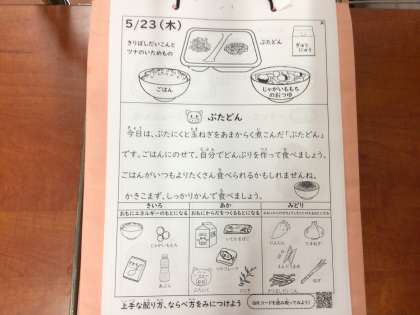 5/23(木)
きりぼしだいこんと
ツナのいためもの
ぶたどん
ぎゅう
にゅう
ごはん
じゃがいももち
のおつゆ
ぶたどん
今日は、ぶたにくと玉ねぎをあまからく煮こんだ「ぶたどん」
です。ごはんにのせて、自分でどんぶりを作って食べましょう。
ごはんがいつもよりたくさん食べられるかもしれませんね。
かきこまず、しっかりかんで食べましょう。
きいろ
あか
みどり
おもにエネルギーのもとになる
おもにからだをつくるもとになる
じゃがいももち
にんじん
たまねぎ
ぶたにく
ねぎ
上手な配り方、ならべ方をみにつけよう
QRコードを読み取ってみよう!